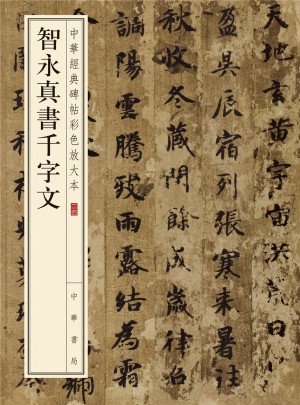 中華經典碑帖彩色放大本
智永真書千字文
中華書局
地玄黃宇宙洪荒日
盈昃辰宿列張寒来暑往
秋收冬藏閏餘成歲律
調陽雲騰致雨露結為霜